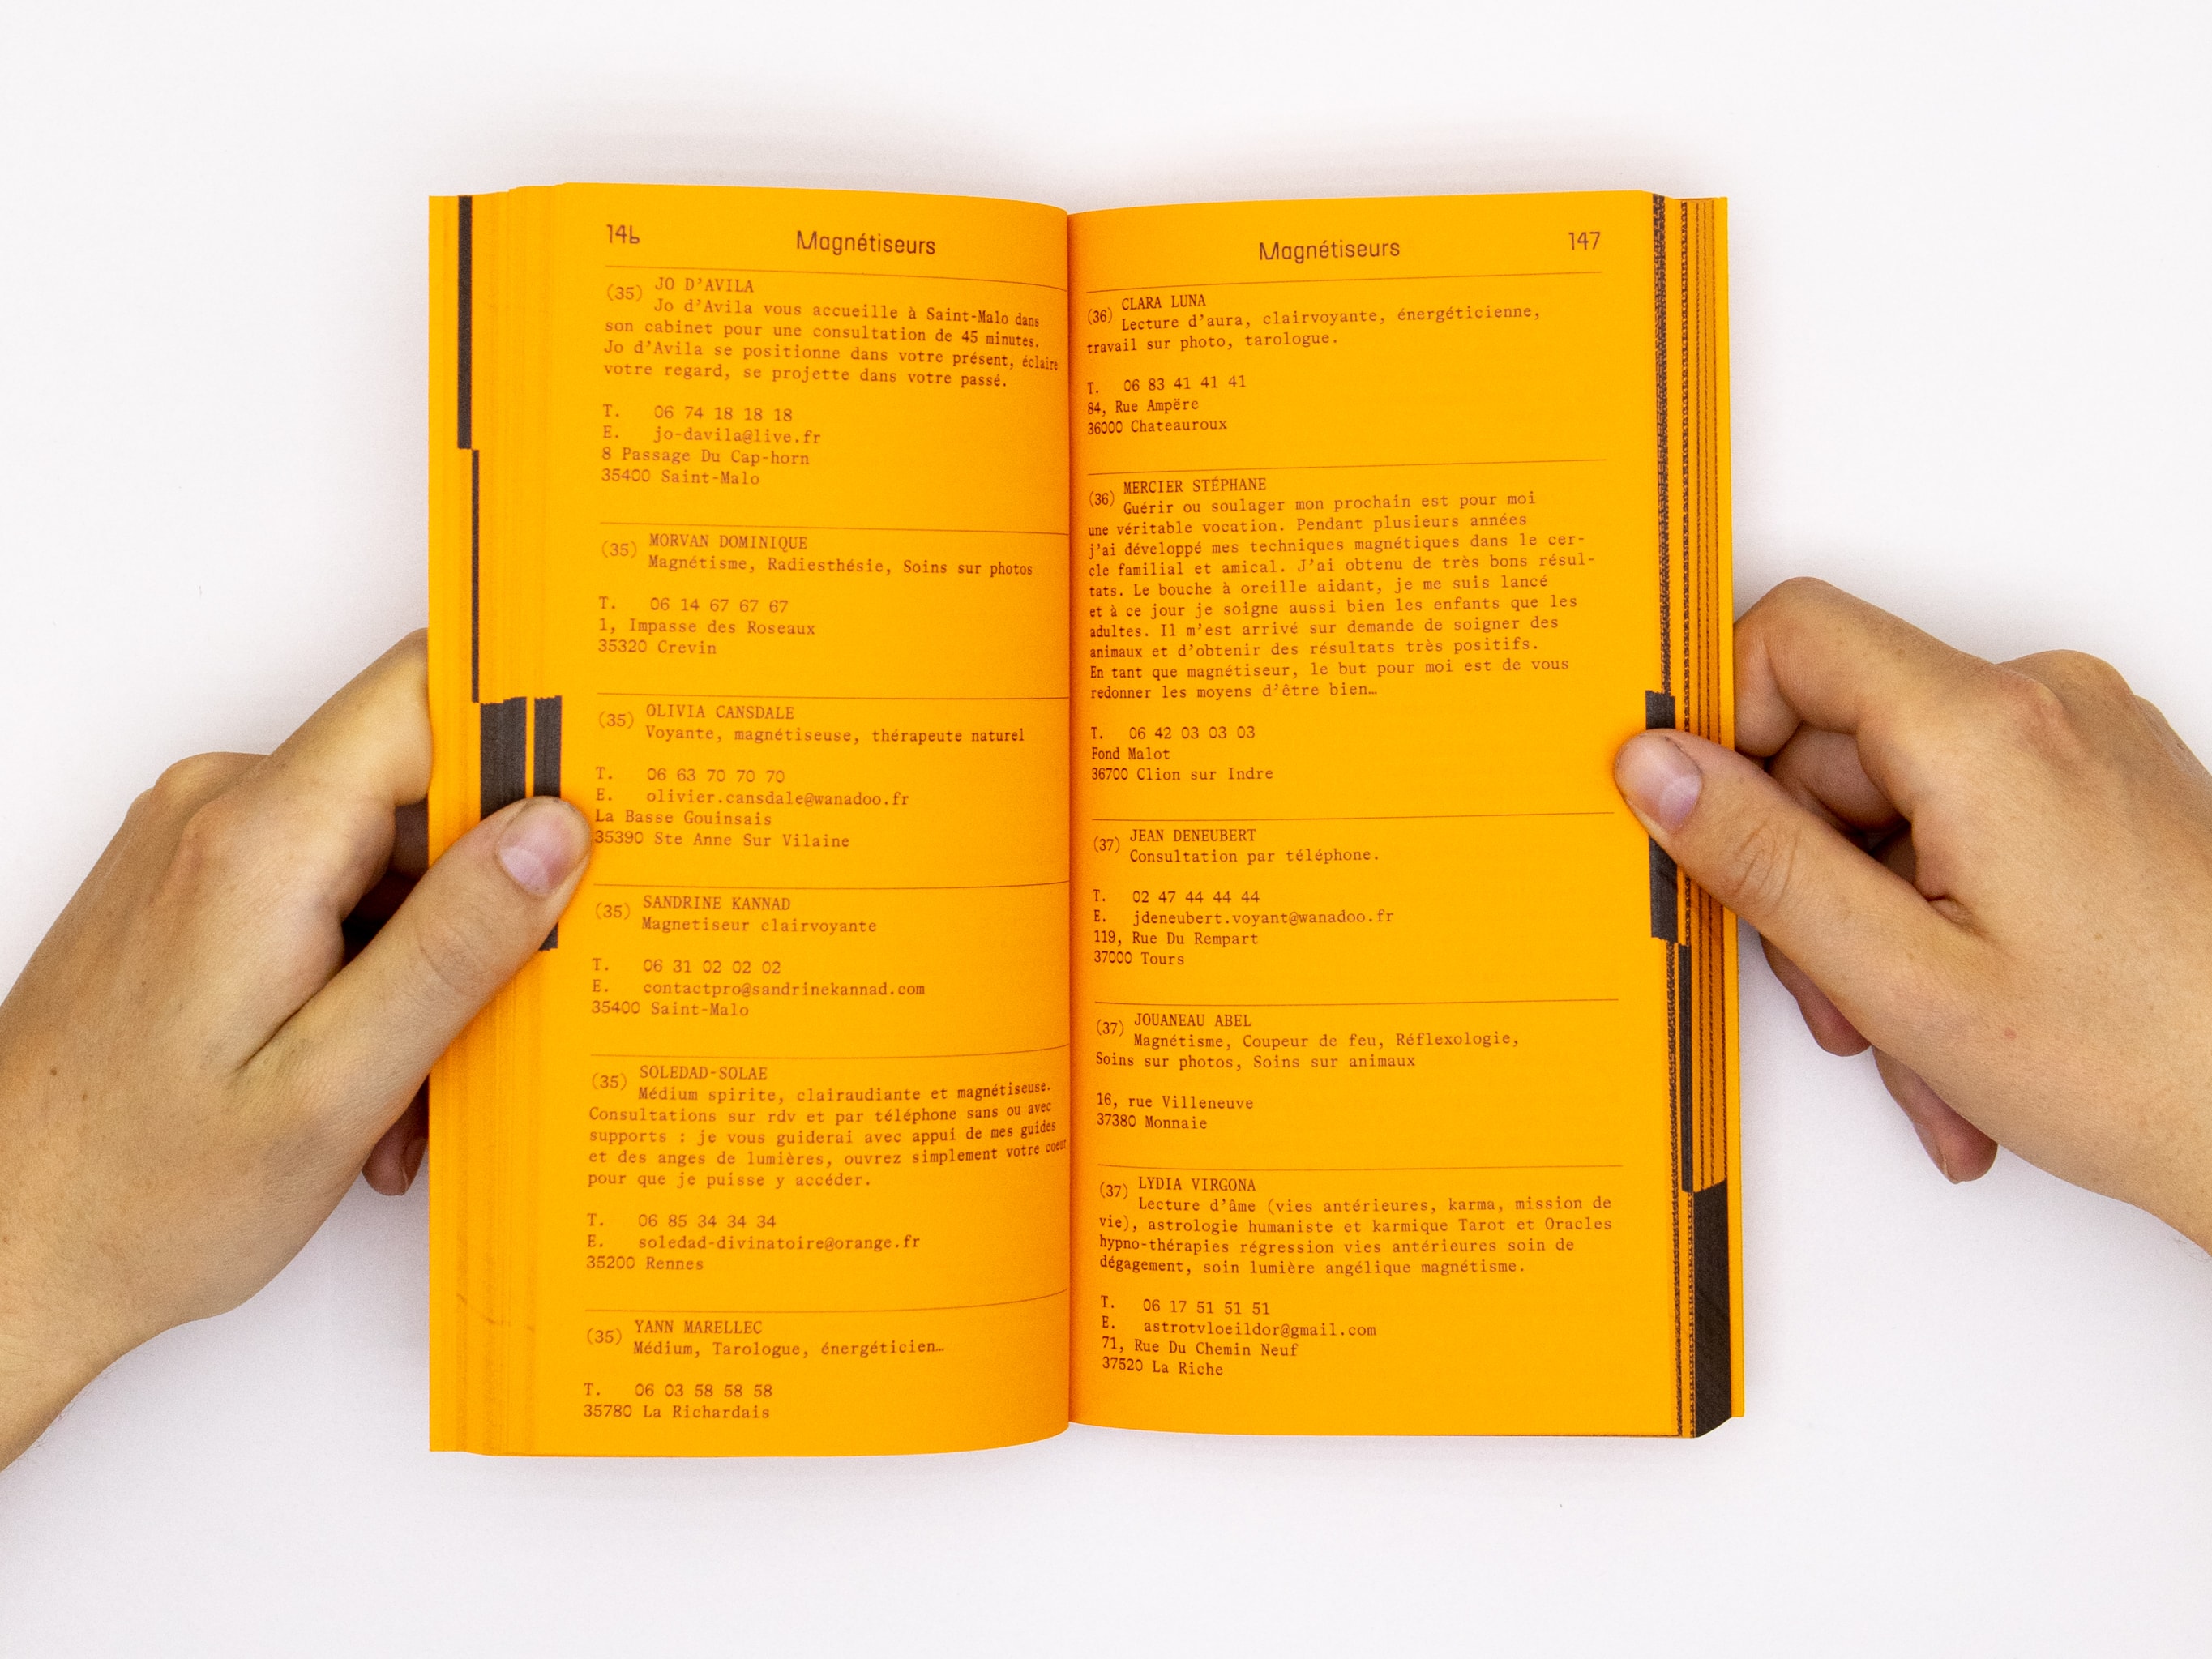 146
Magnétiseurs
(35) JO D'AVILA
Jo d'Avila vous accueille à Saint-Malo dans
son cabinet pour une consultation de 45 minutes.
Jo d'Avila se positionne dans votre présent, éclaire
votre regard, se projette dans votre passé.
T. 06 74 18 18 18
E. jo-davila@live.fr
8 Passage Du Cap-horn
35400 Saint-Malo
(35) MORVAN DOMINIQUE
Magnétisme, Radiesthésie, Soins sur photos
T. 06 14 67 67 67
1, Impasse des Roseaux
35320 Crevin
(35) OLIVIA CANSDALE
Voyante, magnétiseuse, thérapeute naturel
T. 06 63 70 70 70
E. olivier.cansdale@wanadoo.fr
La Basse Gouinsais
35390 Ste Anne Sur Vilaine
(35) SANDRINE KANNAD
Magnetiseur clairvoyante
T. 06 31 02 02 02
E. contactpro@sandrinekannad.com
35400 Saint-Malo
(35) SOLEDAD-SOLAE
Médium spirite, clairaudiante et magnétiseuse.
Consultations sur rdv et par téléphone sans ou avec
supports : je vous guiderai avec appui de mes guides
et des anges de lumières, ouvrez simplement votre coeur
pour que je puisse y accéder.
T. 06 85 34 34 34
E. soledad-divinatoire@orange.fr
35200 Rennes
(35) YANN MARELLEC
Médium, Tarologue, énergéticien…
T. 06 03 58 58 58
35780 La Richardais
Magnétiseurs
147
(36) CLARA LUNA
Lecture d'aura, clairvoyante, énergéticienne,
travail sur photo, tarologue.
T. 06 83 41 41 41
84, Rue Ampëre
36000 Chateauroux
(36) MERCIER STÉPHANE
Guérir ou soulager mon prochain est pour moi
une véritable vocation. Pendant plusieurs années
j'ai développé mes techniques magnétiques dans le cer-
cle familial et amical. J'ai obtenu de très bons résul-
tats. Le bouche à oreille aidant, je me suis lancé
et à ce jour je soigne aussi bien les enfants que les
adultes. Il m'est arrivé sur demande de soigner des
animaux et d'obtenir des résultats très positifs.
En tant que magnétiseur, le but pour moi est de vous
redonner les moyens d'être bien…
T. 06 42 03 03 03
Fond Malot
36700 Clion sur Indre
(37) JEAN DENEUBERT
Consultation par téléphone.
T. 02 47 44 44 44
E. jdeneubert.voyant@wanadoo.fr
119, Rue Du Rempart
37000 Tours
(37) JOUANEAU ABEL
Magnétisme, Coupeur de feu, Réflexologie,
Soins sur photos, Soins sur animaux
16, rue Villeneuve
37380 Monnaie
(37) LYDIA VIRGONA
Lecture d'âme (vies antérieures, karma, mission de
vie), astrologie humaniste et karmique Tarot et Oracles
hypno-thérapies régression vies antérieures soin de
dégagement, soin lumière angélique magnétisme.
T. 06 17 51 51 51
E. astrotvloeildor@gmail.com
71, Rue Du Chemin Neuf
37520 La Riche